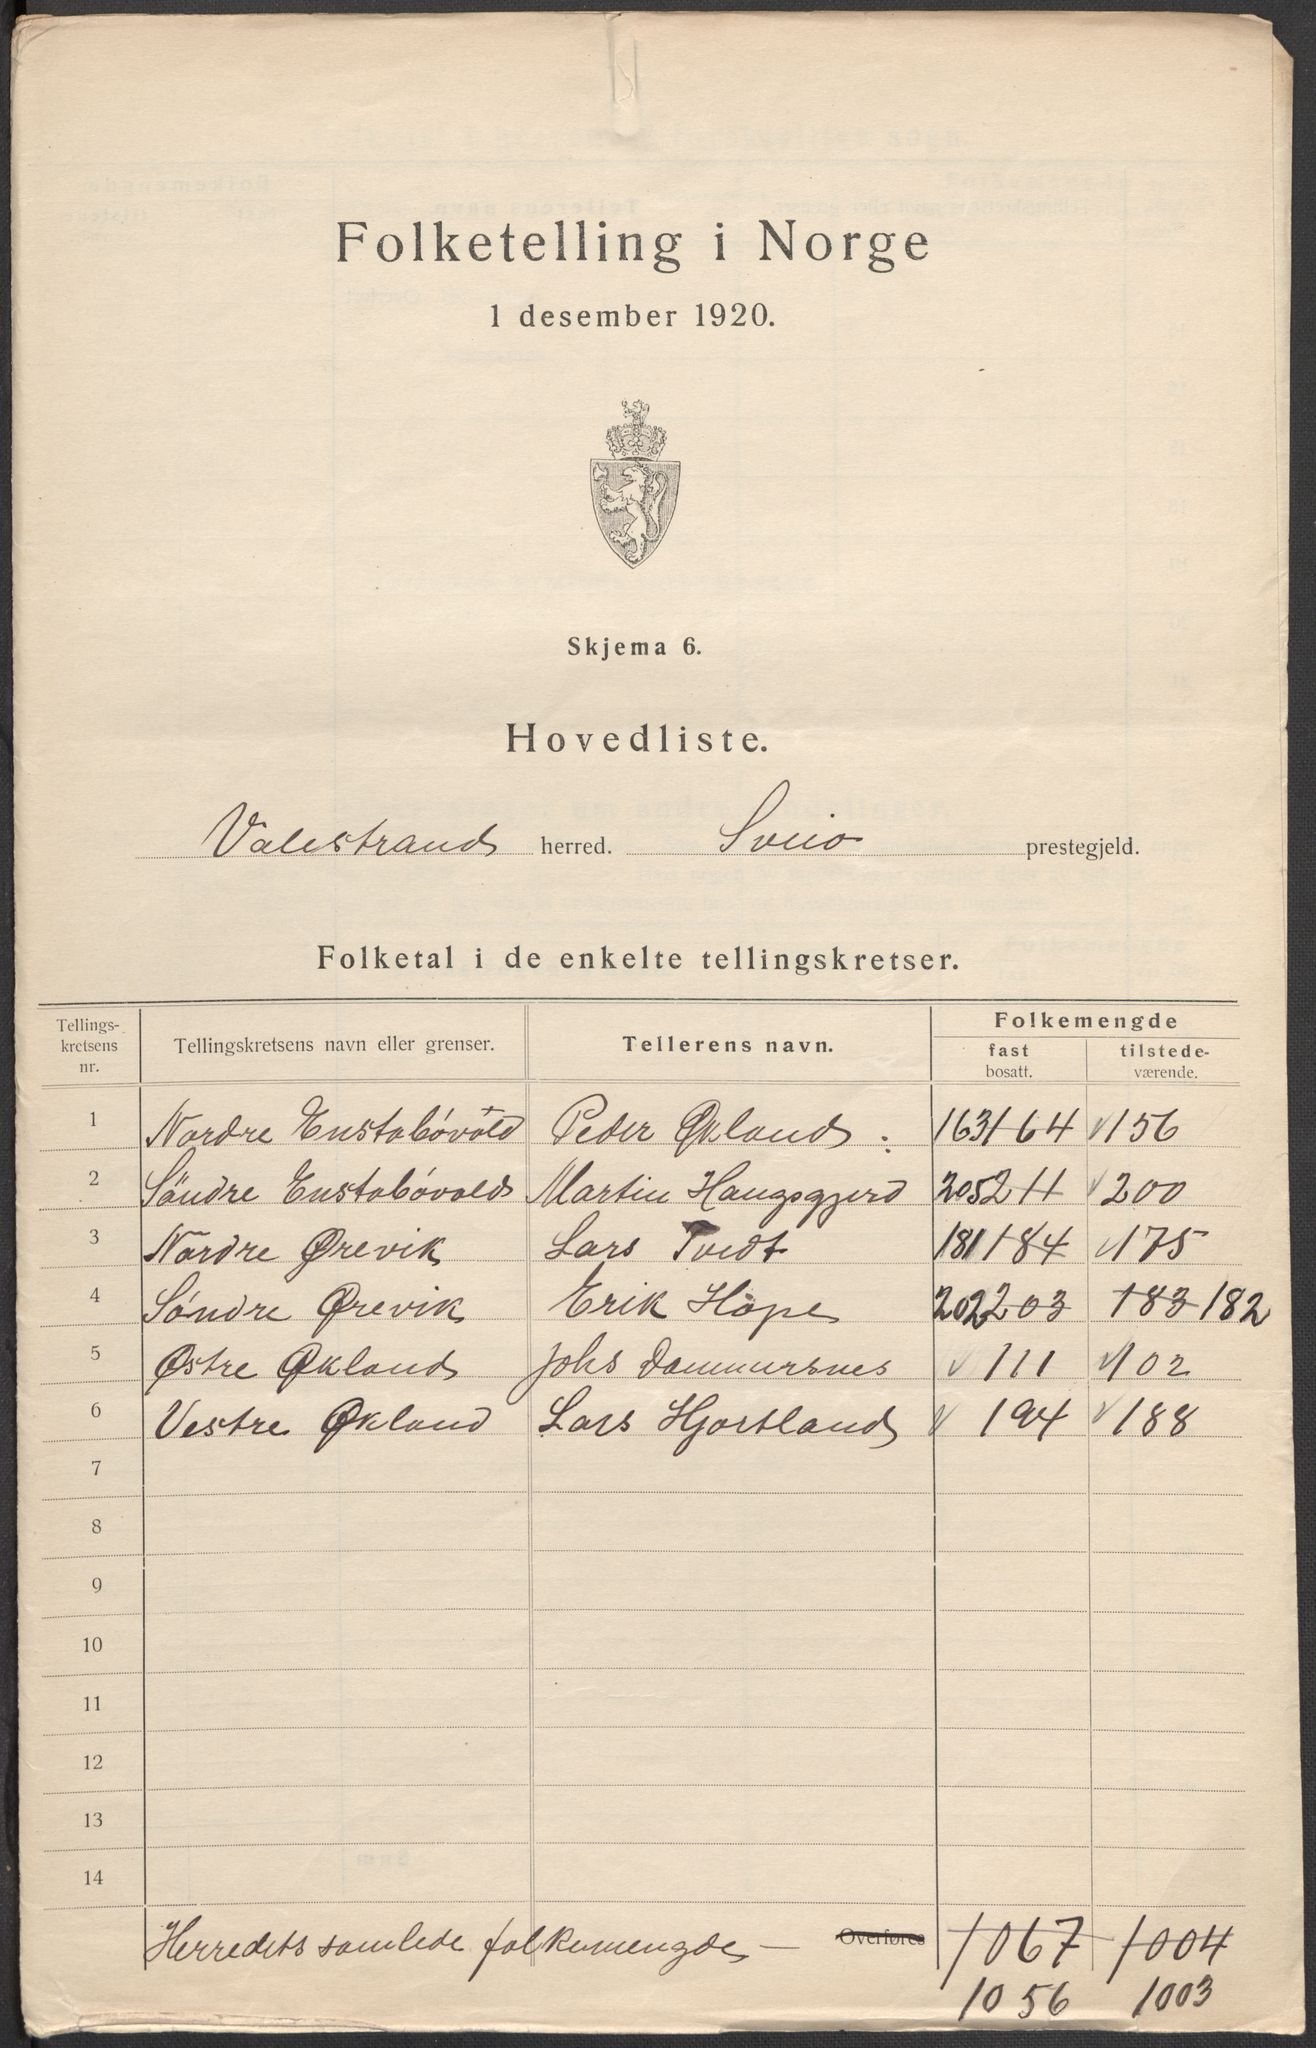 Folketelling i Norge
1 desember 1920.
Skjema 6.
Hovedliste.
Valestrand herred. Sveio prestegjeld.
Folketal i de enkelte tellingskretser.
Tellings-
kretsens
nr.
Tellingskretsens navn eller grenser.
Tellerens navn.
Folkemengde
fast
bosatt.
tilstede-
værende.
1 Nordre Enstabóvóld Peder Økland 163 164 156
2 Söndre Enstabóvold Martin Haugsgjerd 205 211 200
3 Nordre Ørevik Lars Tvedt 181 184 175
4 Söndre Ørevik Erik Hope 202 203 183 182
5 Østre Økland Johs Dommersnes 111 102
6 Vestre Økland Lars Hjortland 194 188
7
8
9
10
11
12
13
14
Herredets samlede folkemengde — Overføres 1067 1004
1056 1003